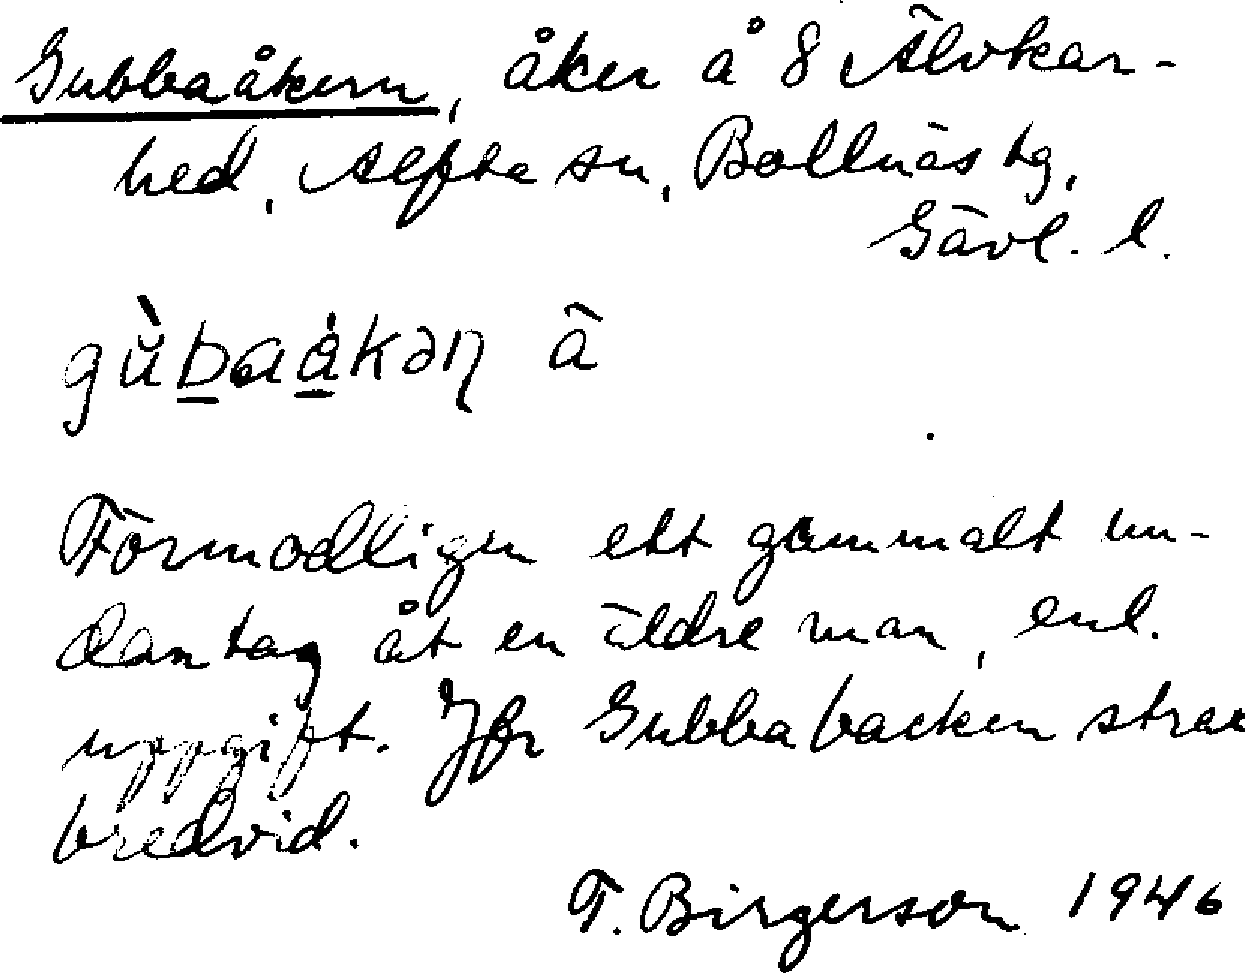 Gubbaåkern, åker å 8 Älvkar-
hed, Alfta sn, Bollnäs tg,
Gävl. l.
gùbaåkəṇ ā
Förmodligen ett gammalt un-
dantag åt en äldre man, enl.
uppgift. Jfr Gubbabacken strax
bredvid.
T. Birgerson 1946